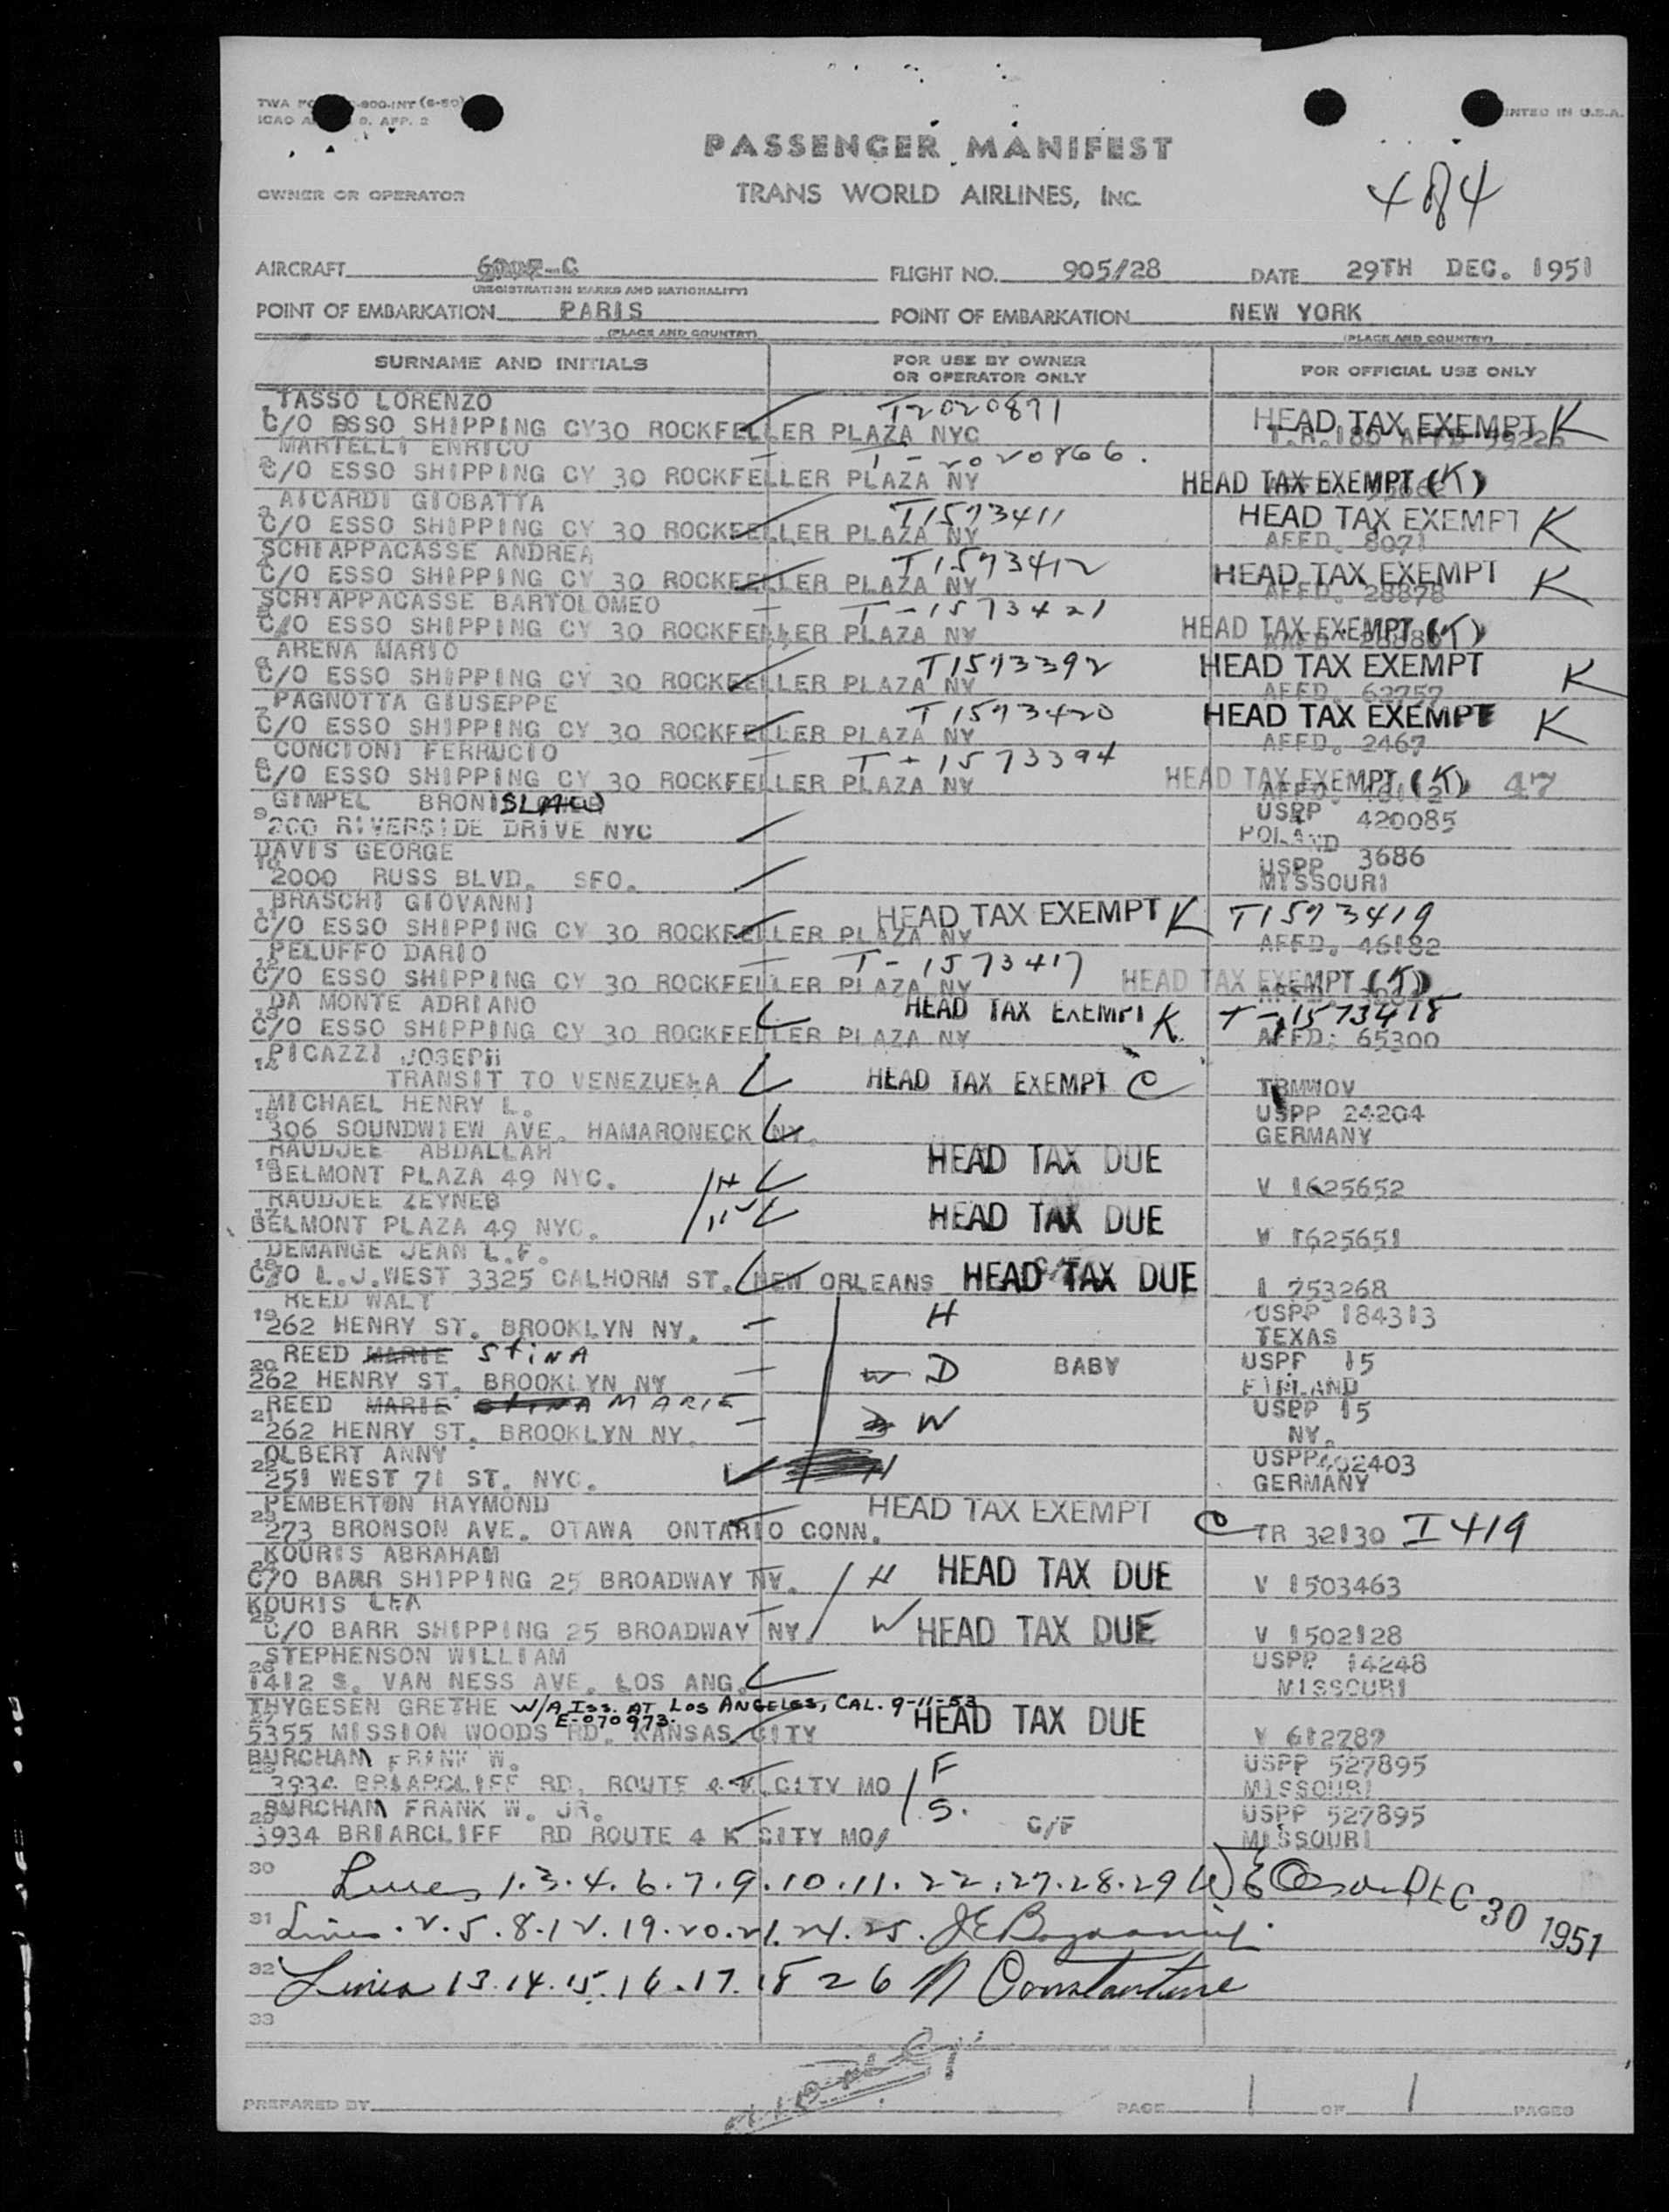 TWA -800-INT (6-50)
ICAO 9. APP. 2
PRINTED IN U.S.A.
PASSENGER MANIFEST
OWNER OR OPERATOR
TRANS WORLD AIRLINES, INC.
484
AIRCRAFT FLIGHT NO. 905/28 DATE 29TH DEC. 1951
(REGISTRATION MARKS AND NATIONALITY)
POINT OF EMBARKATION PARIS POINT OF EMBARKATION NEW YORK
(PLACE AND COUNTRY) (PLACE AND COUNTRY)
SURNAME AND INITIALS FOR USE BY OWNER OR OPERATOR ONLY FOR OFFICIAL USE ONLY
1 TASSO LORENZO T2020871 HEAD TAX EXEMPT K
C/O ESSO SHIPPING CY 30 ROCKFELLER PLAZA NYC
2 MARTELLI ENRICO T-2020866.
C/O ESSO SHIPPING CY 30 ROCKFELLER PLAZA NY HEAD TAX EXEMPT (K)
3 AICARDI GIOBATTA T1573411 HEAD TAX EXEMPT K
C/O ESSO SHIPPING CY 30 ROCKFELLER PLAZA NY AFFD. 8071
4 SCHIAPPACASSE ANDREA T1573412 HEAD TAX EXEMPT K
C/O ESSO SHIPPING CY 30 ROCKFELLER PLAZA NY AFFD. 28878
5 SCHIAPPACASSE BARTOLOMEO T-1573421
C/O ESSO SHIPPING CY 30 ROCKFELLER PLAZA NY HEAD TAX EXEMPT (K)
6 ARENA MARIO T1573392 HEAD TAX EXEMPT K
C/O ESSO SHIPPING CY 30 ROCKFELLER PLAZA NY AFFD. 62757
7 PAGNOTTA GIUSEPPE T1573420 HEAD TAX EXEMPT K
C/O ESSO SHIPPING CY 30 ROCKFELLER PLAZA NY AFFD. 2467
8 CONCIONI FERRUCIO T-1573394
C/O ESSO SHIPPING CY 30 ROCKFELLER PLAZA NY HEAD TAX EXEMPT (K) 47
9 GIMPEL BRONISLAW USPP 420085
200 RIVERSIDE DRIVE NYC POLAND
10 DAVIS GEORGE USPP 3686
2000 RUSS BLVD. SFO. MISSOURI
11 BRASCHI GIOVANNI HEAD TAX EXEMPT K T1573419
C/O ESSO SHIPPING CY 30 ROCKFELLER PLAZA NY AFFD. 46182
12 PELUFFO DARIO T-1573417
C/O ESSO SHIPPING CY 30 ROCKFELLER PLAZA NY HEAD TAX EXEMPT (K)
13 DA MONTE ADRIANO HEAD TAX EXEMPT K T-1573418
C/O ESSO SHIPPING CY 30 ROCKFELLER PLAZA NY AFFD: 65300
14 PICAZZI JOSEPH
TRANSIT TO VENEZUELA HEAD TAX EXEMPT C TRMWOV
15 MICHAEL HENRY L. USPP 24204
306 SOUNDWIEW AVE. HAMARONECK NY. GERMANY
16 RAUDJEE ABDALLAH HEAD TAX DUE
BELMONT PLAZA 49 NYC. H V 1625652
17 RAUDJEE ZEYNEB HEAD TAX DUE
BELMONT PLAZA 49 NYC. W V 1625651
18 DEMANGE JEAN L.F.
C/O L.J.WEST 3325 CALHORM ST. NEW ORLEANS HEAD TAX DUE I 753268
19 REED WALT H USPP 184313
262 HENRY ST. BROOKLYN NY. TEXAS
20 REED MARIE STINA W D BABY USPP 15
262 HENRY ST. BROOKLYN NY
21 REED MARIE STINA MARIE W USPP 15
262 HENRY ST. BROOKLYN NY. NY.
22 OLBERT ANNY USPP 402403
251 WEST 71 ST. NYC. GERMANY
23 PEMBERTON RAYMOND HEAD TAX EXEMPT C
273 BRONSON AVE. OTAWA ONTARIO CONN. TR 32130 I 419
24 KOURIS ABRAHAM
C/O BARR SHIPPING 25 BROADWAY NY. H HEAD TAX DUE V 1503463
25 KOURIS LEA
C/O BARR SHIPPING 25 BROADWAY NY. W HEAD TAX DUE V 1502128
26 STEPHENSON WILLIAM USPP 14248
1412 S. VAN NESS AVE. LOS ANG. MISSOURI
27 THYGESEN GRETHE W/A ISS. AT LOS ANGELES, CAL. 9-11-53 E-070973. HEAD TAX DUE
5355 MISSION WOODS RD. KANSAS CITY V 612787
28 BURCHAM FRANK W. F USPP 527895
3934 BRIARCLIFF RD. ROUTE 4 K CITY MO MISSOURI
29 BURCHAM FRANK W. JR. S. C/F USPP 527895
3934 BRIARCLIFF RD ROUTE 4 K CITY MO MISSOURI
30 Lines 1.3.4.6.7.9.10.11.22.27.28.29 DEC 30 1951
31 Lines.2.5.8.12.19.20.21.24.25.
32 Lines 13.14.15.16.17.18 26 Constantine
33
PREPARED BY PAGE 1 OF 1 PAGES